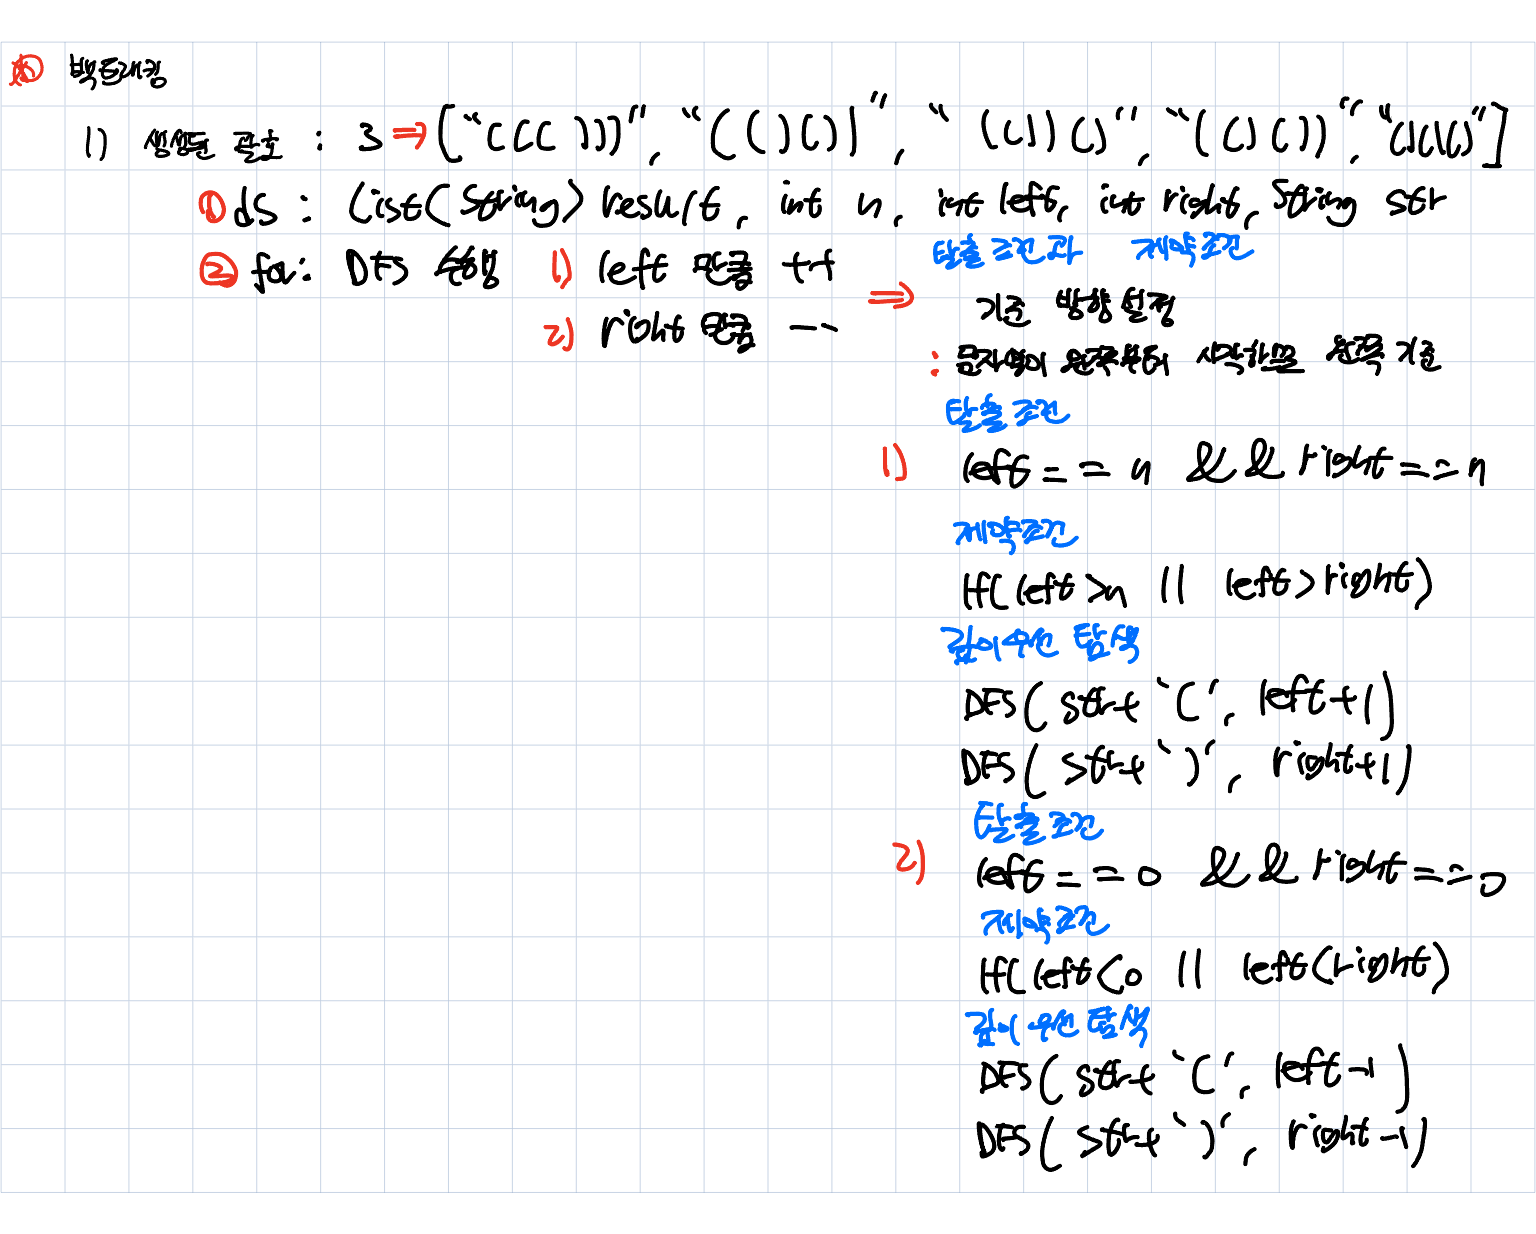 백트래킹
1) 생성된 괄호 : 3 ⇒ ["((()))", "(()())", "(())()", "(()())", "()()()"]
① ds : List<String> result, int n, int left, int right, String str
② for : DFS 수행 1) left 만큼 ++
2) right 만큼 --
탈출 조건과 제약조건
⇒ 기준 방향 설정
: 문자열이 왼쪽부터 시작하므로 왼쪽 기준
탈출 조건
1) left == n && right == n
제약조건
if( left > n || left > right )
깊이우선 탐색
DFS( str + '(', left+1 )
DFS( str + ')', right+1 )
탈출 조건
2) left == 0 && right == 0
제약조건
if( left < 0 || left < right )
깊이 우선 탐색
DFS( str + '(', left-1 )
DFS( str + ')', right-1 )